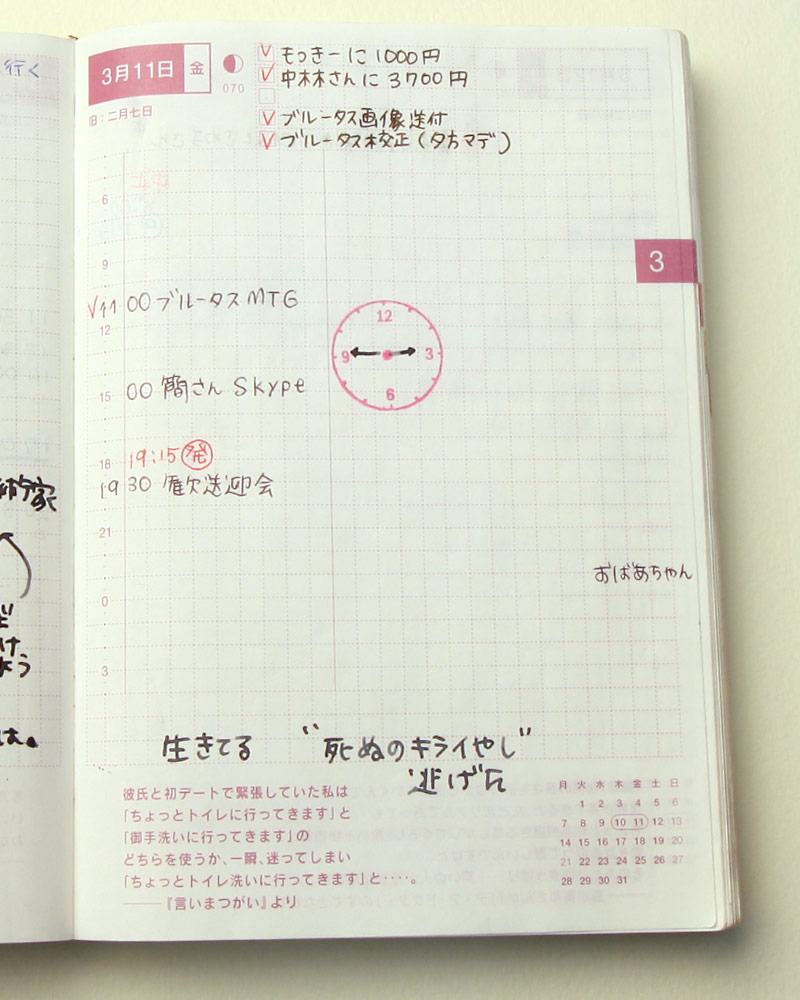 行く
3月11日 金
070
旧:二月七日
もっきーに1000円
中林さんに3700円
ブルータス画像送付
ブルータス校正(夕方マデ)
6
9
11 00 ブルータスMTG
12
15 00 簡さん Skype
18 19:15 発
19 30 歓送迎会
21
0
3
3
12
3
6
9
おばあちゃん
生きてる "死ぬのキライやし"
逃げ
彼氏と初デートで緊張していた私は
「ちょっとトイレに行ってきます」と
「御手洗いに行ってきます」の
どちらを使うか、一瞬、迷ってしまい
「ちょっとトイレ洗いに行ってきます」と‥‥。
――『言いまつがい』より
月 火 水 木 金 土 日
1 2 3 4 5 6
7 8 9 10 11 12 13
14 15 16 17 18 19 20
21 22 23 24 25 26 27
28 29 30 31